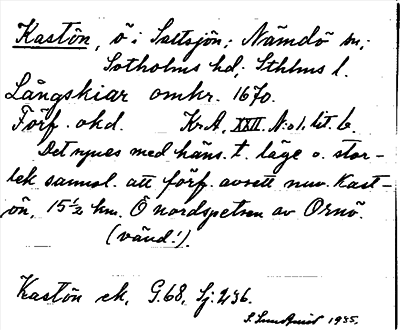 Kastön, ö i Saltsjön; Nämdö sn;
Sotholms hd; Sthlms l.
Långskiar omkr. 1670.
Förf. okd. Kr.A. XXII N:o 1. lit. b.
Det synes med häns. t. läge o. stor-
lek sannol. att förf. avsett nuv. Kast-
ön, 15½ km. Ö nordspetsen av Ornö.
(vänd!).
Kastön ek. G.68, Sj. 236.
S. Sundquist 1935.